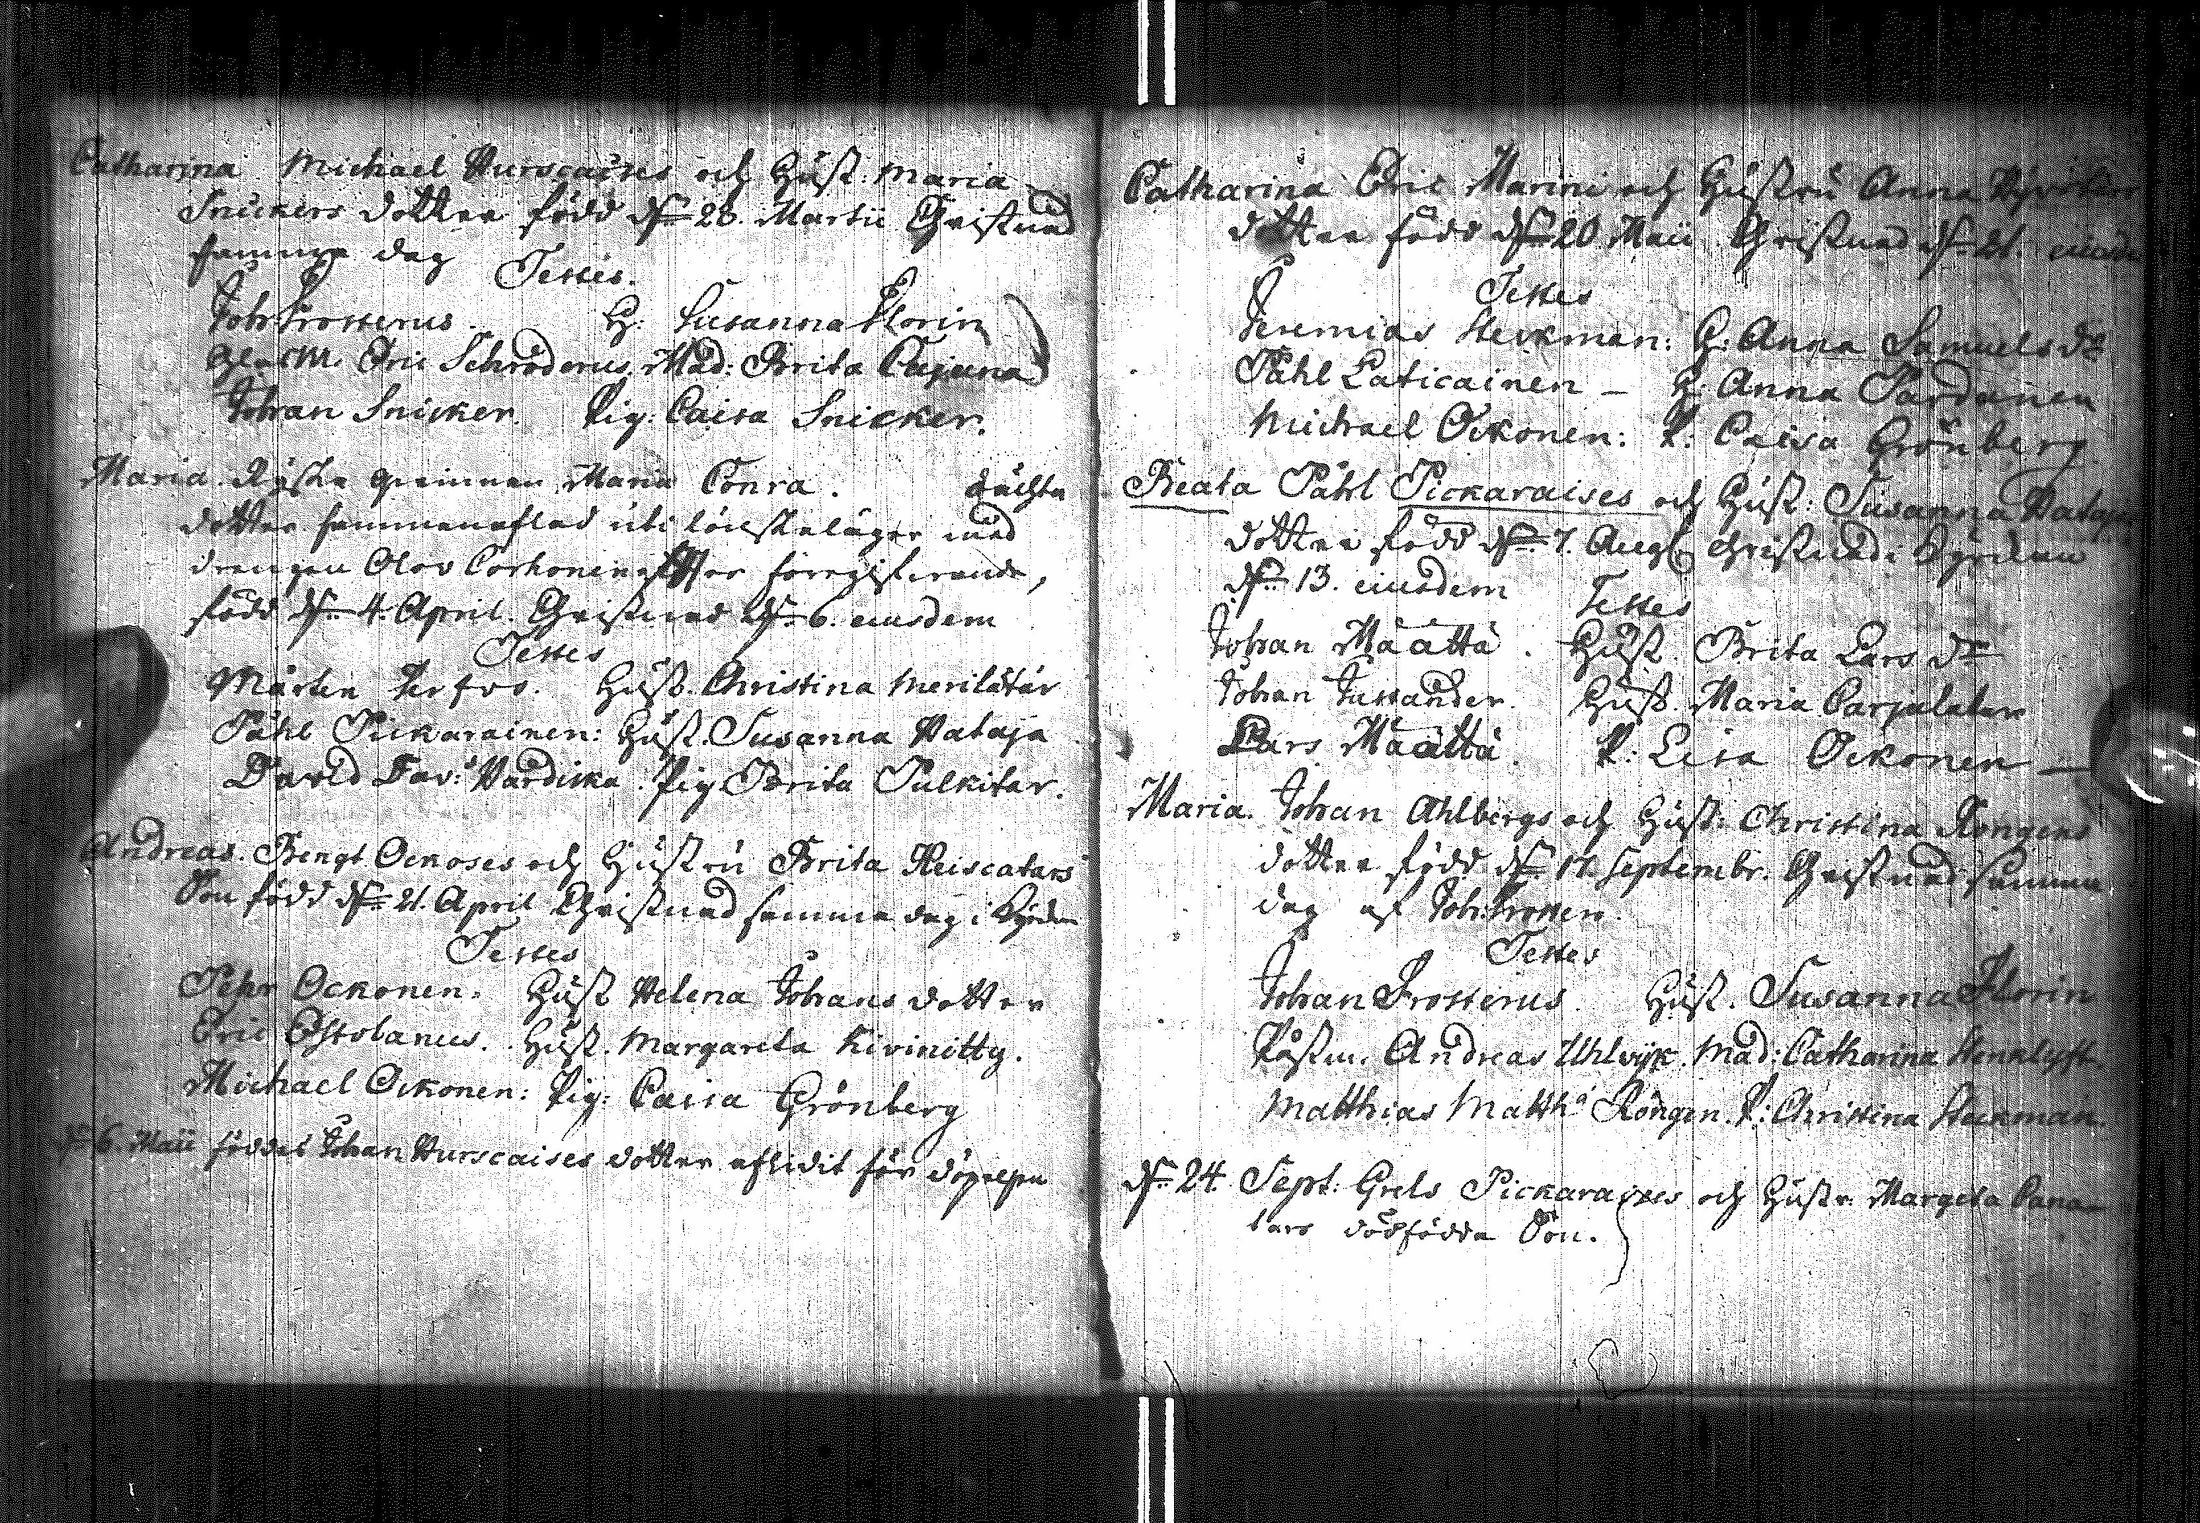 Catharina Michael Hurscaises och Hust: Maria
Snickers dotter född dn 28. Martii Christnad
samma dag
Testes.
Joh: Frosterus. H: Susanna Florin
Eric Schroderus. Mad: Brita Cajana
Johan Snicker. Pig: Caisa Snicker.
Maria. Ryska qvinnan Maria Conra. ächta
dotter sammanaflad uti lönskaläger med
drengen Olov Corhonen efter föregifvande,
född dn 4. April. Christnad dn 6. eiusdem
Testes
Mårten Hust. Christina Merilätär
Påhl Pickarainen: Hust. Susanna Wataja
David Dav:s Pig Brita Pulkitar.
Andreas. Bengt Ockoses och Hustru Brita Heiscatars
Son född dn 21. April Christnad samma dag i Kyrckan
Testes
Pehr Ockonen. Hust Helena Johans dotter
Eric Hust. Margareta Kivinitty.
Michael Ockonen: Pig: Caisa Grönberg
dn 6. Maii föddes Johan Hurscaises dotter aflidit för döpelsen
Catharina Eric Marini och Hustru Anna
dotter född dn 20 Maii Christnad dn 21.
Testes
Jeremias Steckman: H: Anna Samuels dr
Påhl Laticainen – H: Anna Pardanen
Michael Ockonen: P: Caisa Grönberg
Beata Påhl Pickaraises och Hust: Susanna
dotter född dn 7. Aug. Christnad i Kyrckan
dn 13. eiusdem Testes
Johan Määttä. Hust. Brita Lars dr
Johan Tussander. Hust. Maria Carjalatar
Lars Määttä. P: Lisa Ockonen –
Maria. Johan Ahlbergs och Hust: Christina Rongens
dotter född dn 17. Septembr. Christnad samma
dag af Joh: Frosterus
Testes
Johan Frosterus. Hust. Susanna Florin
Andreas Uhlwijk. Mad: Catharina
Matthias Matths Rongen. P: Christina Steckman
dn 24. Sept: Grels Pickaraises och Hustr: Margeta Pana-
tars dödfödda Son.